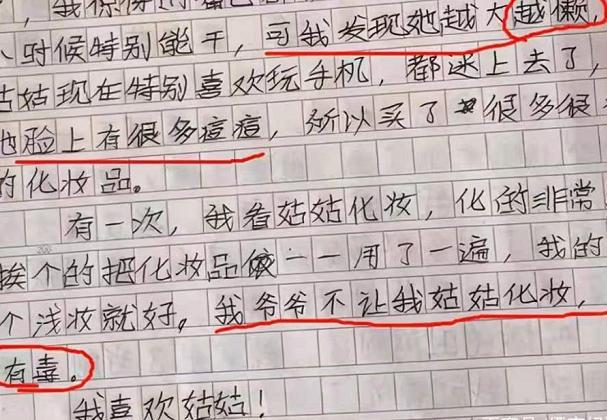 小时候特别能干，可我发现她越大越懒，
姑姑现在特别喜欢玩手机，都迷上去了，
她脸上有很多痘痘，所以买了很多很
的化妆品。
有一次，我看姑姑化妆，化的非常
挨个的把化妆品一一用了一遍，我的
个浅妆就好。我爷爷不让我姑姑化妆，
有毒。
我喜欢姑姑！